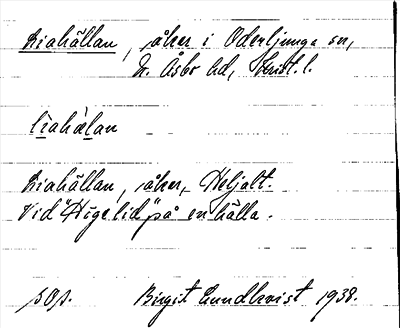 Liahällan, åker i Oderljunga sn,
N. Åsbo hd, Krist. l.
lìahæ̀lan
Liahällan, åker, Heljalt.
Vid "Högelid" på en hälla.
sOp. Birgit Lundkvist 1938.